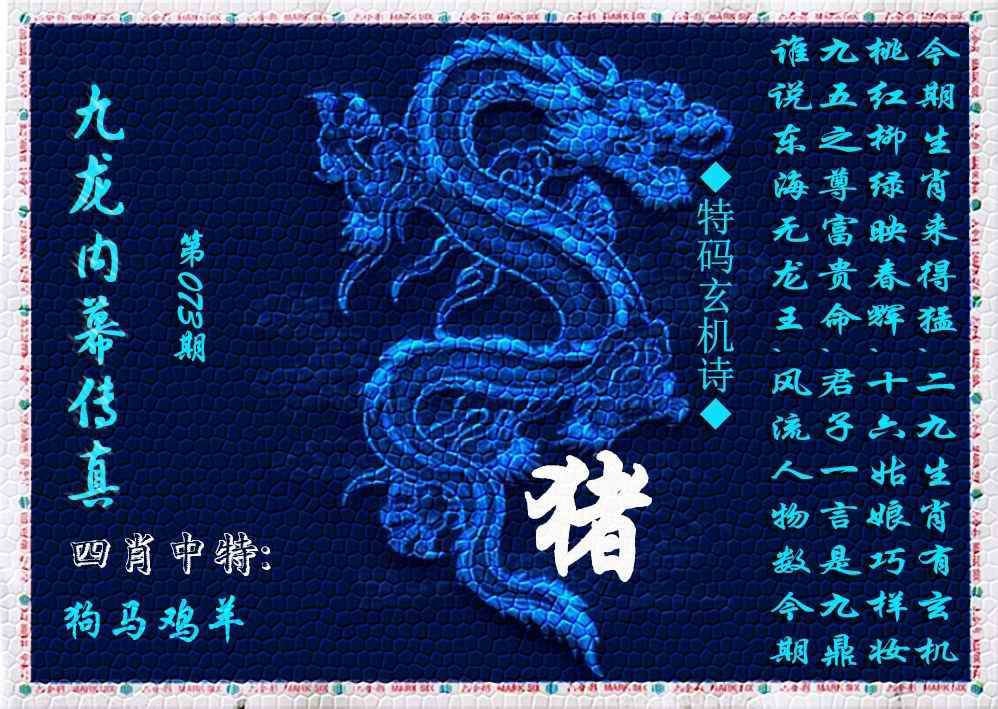 今期生肖来得猛、二九生肖有玄机
桃红柳绿映春辉、十六姑娘巧样妆
九五之尊富贵命、君子一言是九鼎
谁说东海无龙王、风流人物数今期
◆特码玄机诗◆
第073期
九龙内幕传真
猪
四肖中特:
狗马鸡羊